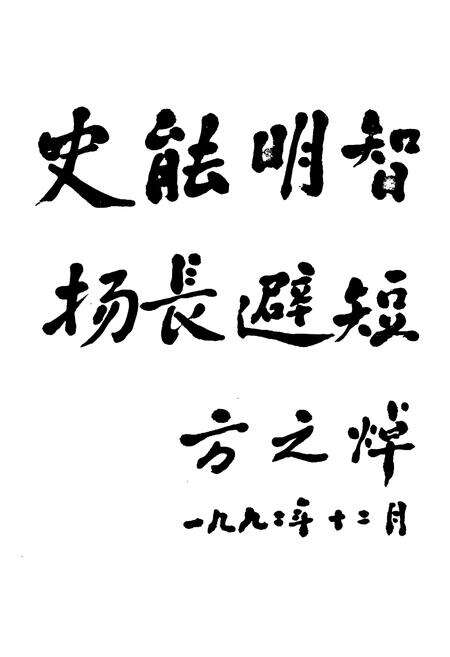 史能明智
扬長避短
方之焯
一九九二年十二月